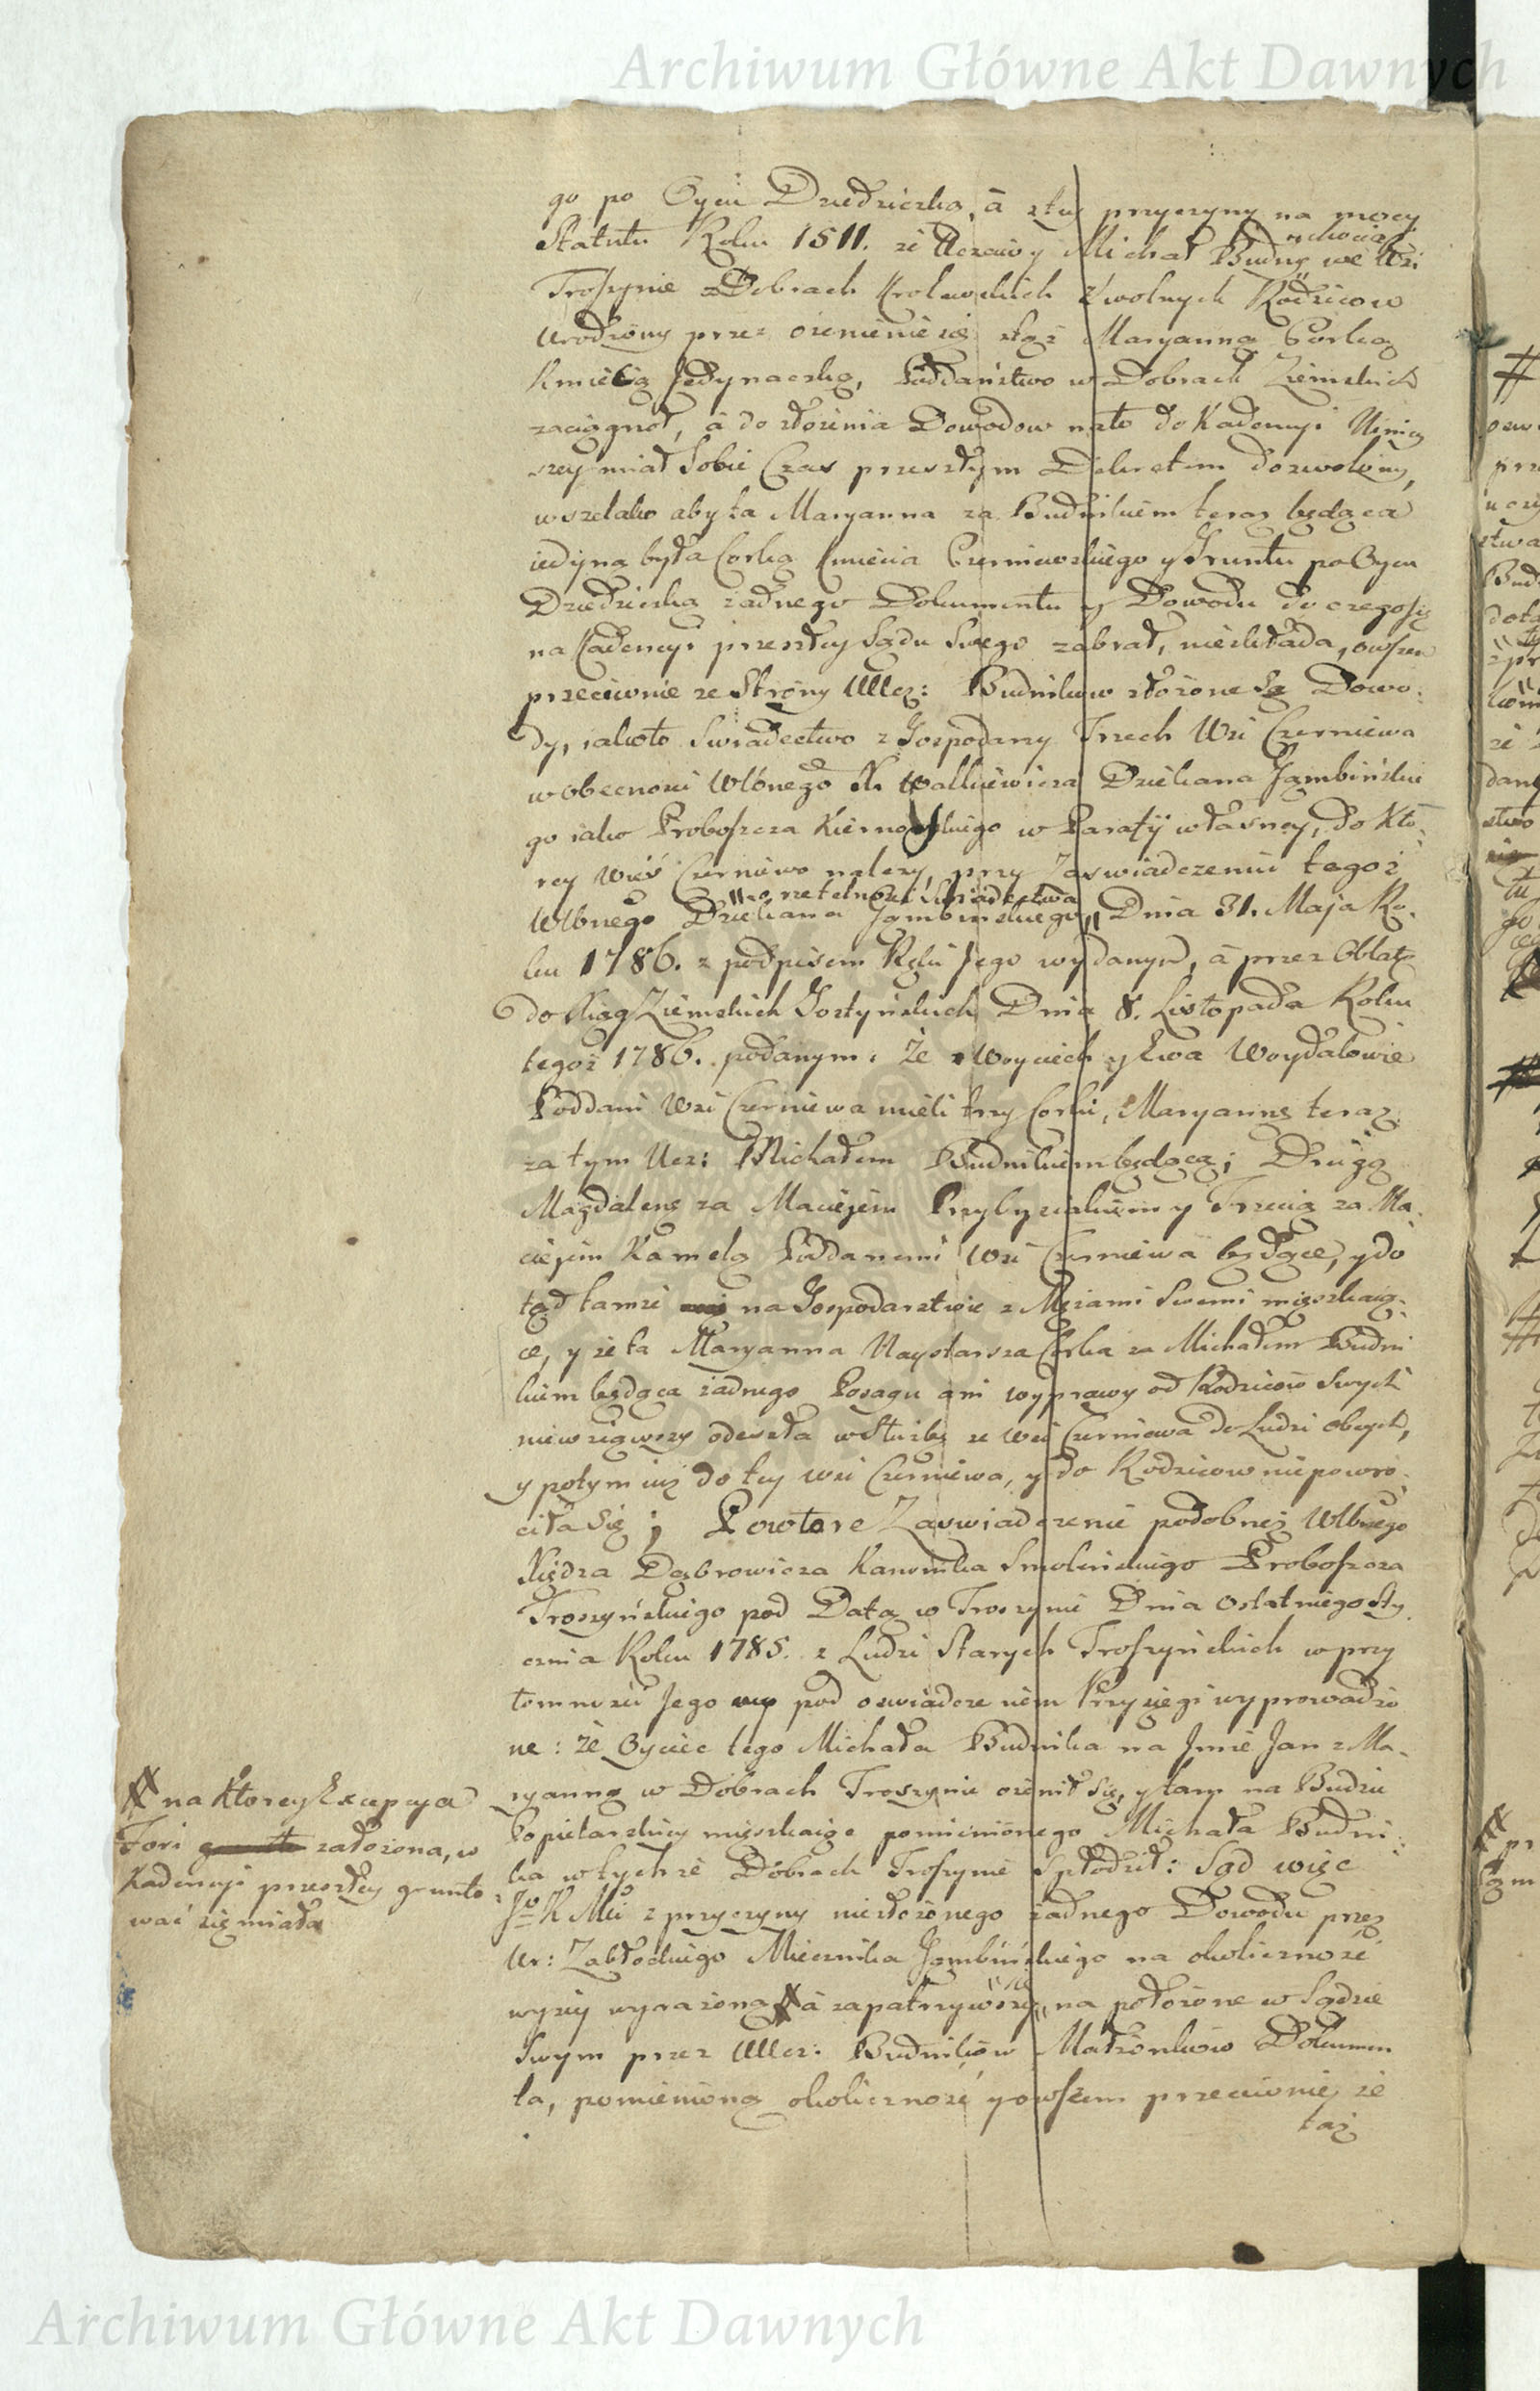 Archiwum Główne Akt Dawnych
go po Oycu Dziedziczką, á z tey przyczyny na mocy
Statutu Roku 1511. że Uczciwy Michał Budny we Wsi
Troszynie w Dobrach Krolewskich z wolnych Rodzicow
urodzony przez ożenienie się z tąż Maryanną Corką
Kmiecią Jedynaczką, Poddaństwo w Dobrach Ziemskich
zaciągnoł, á do złożenia Dowodow na to do Kadencyi Ninie
szey miał Sobie Czas przeszłym Dekretem dozwolony,
wszelako aby ta Maryanna za Budnikiem teraz będąca
iedyną była Corką Kmiecia Czerniewskiego y Gruntu po Oycu
Dziedziczką żadnego Dokumentu y Dowodu do czego się
na Kadencyi przeszłey Sądu Swego zabrał, nieskłada, owszem
przeciwnie ze Strony UUcz: Budnikow złożone Są Dowo-
dy, iakoto Swiadectwo z Gospodarzy Trzech Wsi Czerniewa
w obecności Wlbnego X. Walkiewicza Dziekana Gąmbińskie
go iako Proboszcza Kiernozkiego w Parafij własney, do Kto-
rey Wieś Czerniewo należy, przy Zaswiadczeniu tegoż
"o rzetelności Swiadectwa
Wlbnego Dziekana Gąmbinskiego " Dnia 31. Maja Ro-
ku 1786. z podpisem Ręki Jego wydanym, á przez Oblatę
do Xiąg Ziemskich Gostyńskich Dnia 8. Listopada Roku
tegoż 1786. podanym: Że Woyciech y Ewa Woydalowie
Poddani Wsi Czerniewa mieli trzy Corki, Maryannę teraz
za tym Ucz: Michałem Budnikiem będącą; Drugą
Magdalenę za Maciejem Przybyszakiem y Trzecią za Ma-
ciejem Kamelą Poddanemi Wsi Czerniewa będące, y do
tąd tamże na Gospodarstwie z Mężami Swemi mięszkaią-
ce, y że ta Maryanna Naystarsza Corka za Michałem Budni
kiem będąca żadnego Posagu ani wyprawy od Rodzicow Swych
niewziąwszy odeszła w Służbę ze Wsi Czerniewa do Ludzi obcych,
y potym iuż do tey wsi Czerniewa, y do Rodzicow niepowro-
ciła Się; Powtore Zaswiadczenie podobneż Wlbnego
Xiędza Dąbrowicza Kanonika Smoleńskiego Proboszcza
Troszyńskiego pod Datą w Troszynie Dnia ostatniego Sty-
cznia Roku 1785. z Ludzi Starych Troszyńskich w przy
tomności Jego pod oswiadczeniem Przysięgi wyprowadzo
ne: że Oyciec tego Michała Budnika na Jmie Jan z Ma-
ryanną w Dobrach Troszynie ożenił się, y tam na Budzie
Popielarskiey mięszkaiąc pomienionego Michała Budni-
ka w tychże Dobrach Troszynie Spłodził: Sąd więc
Jo K Mci z przyczyny niezłożonego żadnego Dowodu przez
Ur: Zabłockiego Miecznika Gąmbińskiego na okoliczność
wyżey wyrażoną # á zapatrzywszy " na położone w Sądzie
Swym przez UUcz: Budnikow Małżonkow Dokumen
ta, pomienioną okoliczność y owszem przeciwnie że
taż
# na Ktorey Excepcya
Fori założona, w
Kadencyi przeszłey grunto-
wać się miała
Archiwum Główne Akt Dawnych